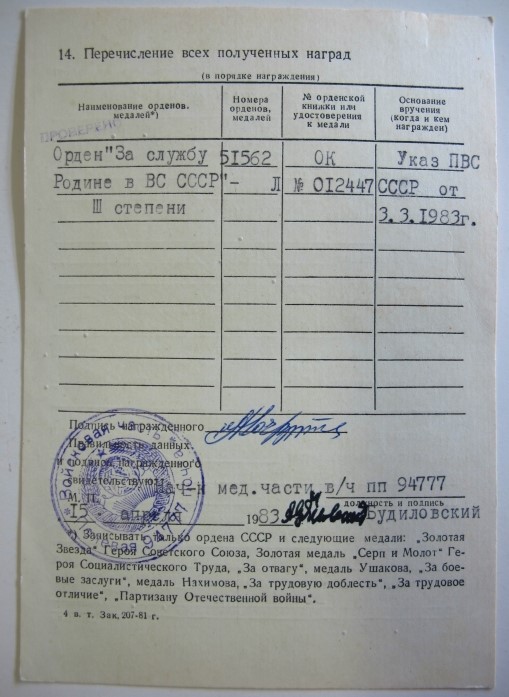 14. Перечисление всех полученных наград
(в порядке награждения)
Наименование орденов, медалей*)
Номера орденов, медалей
№ орденской книжки или удостоверения к медали
Основание вручения (когда и кем награжден)
ПРОВЕРЕНО
Орден"За службу 51562 ОК Указ ПВС
Родине в ВС СССР"- Л № 012447 СССР от
Ш степени 3.3.1983г.
Подпись награжденного
Правильность данных
и подписи награжденного
свидетельствую:
Нач-к мед.части в/ч пп 94777
М. П. должность и подпись
15 апреля 1983 Будиловский
*) Записывать только ордена СССР и следующие медали: „Золотая
Звезда" Героя Советского Союза, Золотая медаль „Серп и Молот" Ге-
роя Социалистического Труда, „За отвагу", медаль Ушакова, „За бое-
вые заслуги", медаль Нахимова, „За трудовую доблесть", „За трудовое
отличие", „Партизану Отечественной войны".
4 в. т. Зак. 207-81 г.
Войсковая часть